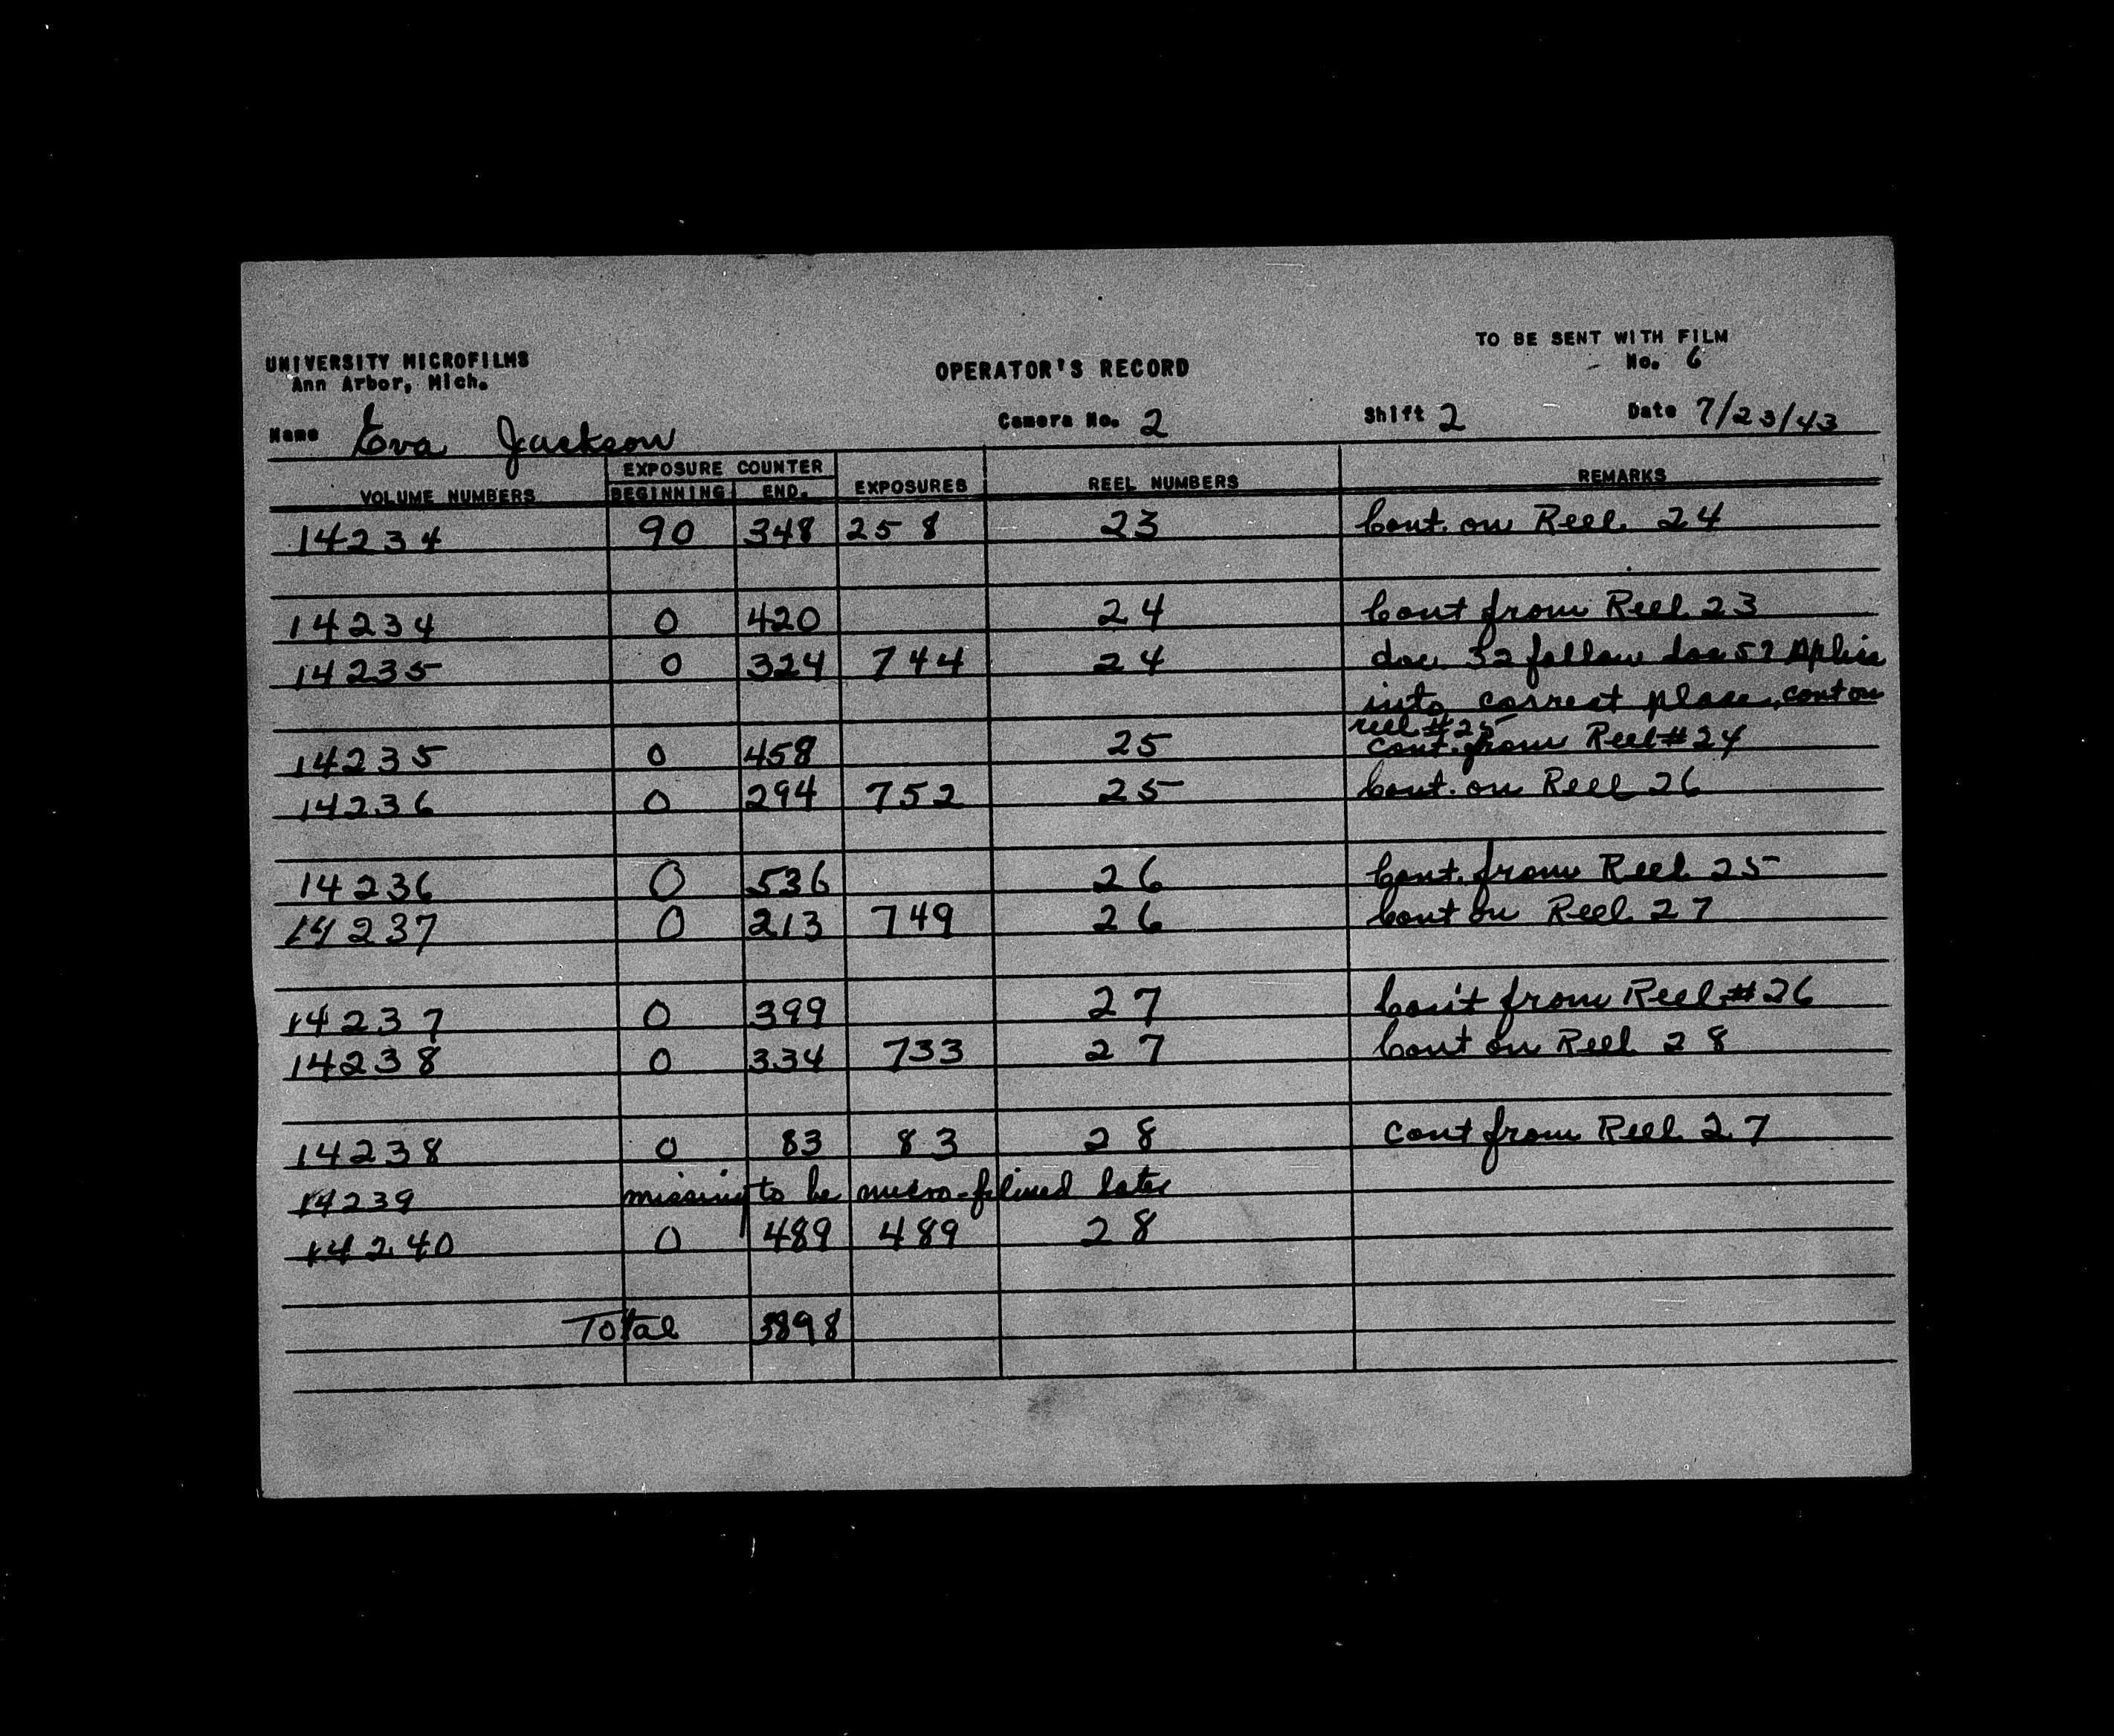 TO BE SENT WITH FILM
UNIVERSITY MICROFILMS OPERATOR'S RECORD No. 6
Ann Arbor, Mich.
Name Eva Jackson Camera No. 2 Shift 2 Date 7/23/43
VOLUME NUMBERS EXPOSURE COUNTER BEGINNING END. EXPOSURES REEL NUMBERS REMARKS
14234 90 348 258 23 Cont. on Reel 24
14234 0 420 24 Cont from Reel 23
14235 0 324 744 24 doc 32 follow doc 59 splice
into correct place, cont on
reel #25
14235 0 458 25 Cont. from Reel #24
14236 0 294 752 25 Cont. on Reel 26
14236 0 536 26 Cont. from Reel 25
14237 0 213 749 26 Cont on Reel 27
14237 0 399 27 Con't from Reel #26
14238 0 334 733 27 Cont on Reel 28
14238 0 83 83 28 Cont from Reel 27
14239 missing to be micro-filmed later
14240 0 489 489 28
Total 3898